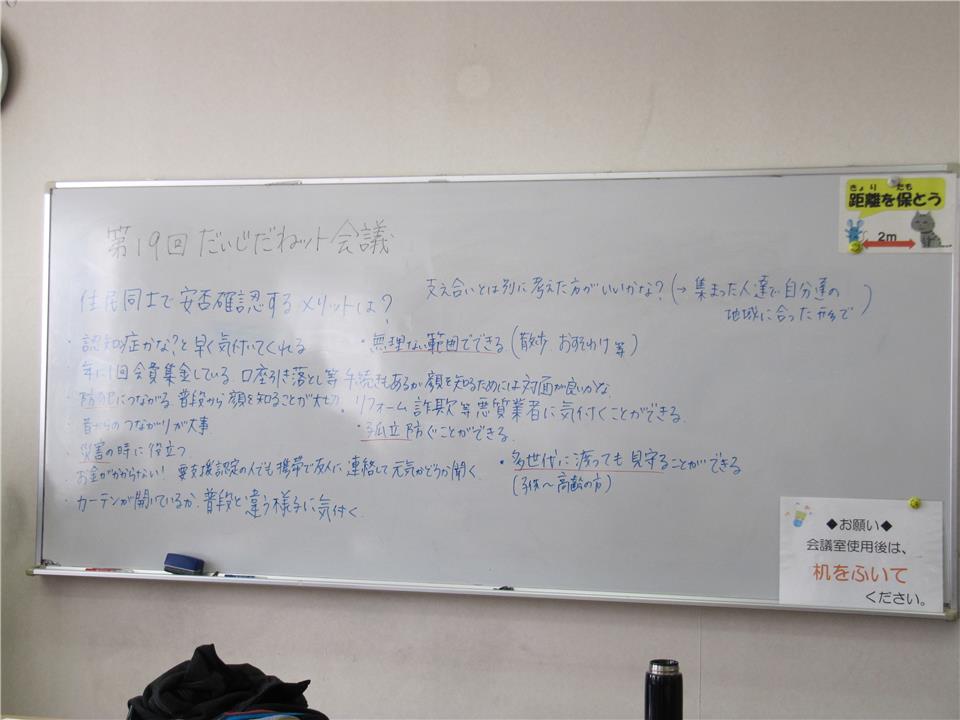 第19回だいじだねット会議
住民同士で安否確認するメリットは?
支え合いとは別に考えた方がいいかな?(→集まった人達で自分達の
地域に合った形で)
・認知症かな?と早く気付いてくれる
・無理ない範囲でできる(散歩 おすそわけ 等)
・年に1回会費集金している。口座引き落とし等手続きもあるが顔を知るためには対面が良いかな
・防犯につながる 普段から顔を知ることが大切
・リフォーム詐欺等悪質業者に気付くことができる。
・昔からのつながりが大事
・孤立防ぐことができる。
・災害の時に役立つ
・お金がかからない! 要支援認定の人でも携帯で友人に連絡して元気かどうか聞く。
・多世代に渡っても見守ることができる
(子供〜高齢の方)
・カーテンが開いているか。普段と違う様子に気付く。
きょり たも
距離を保とう
2m
◆お願い◆
会議室使用後は、
机をふいて
ください。